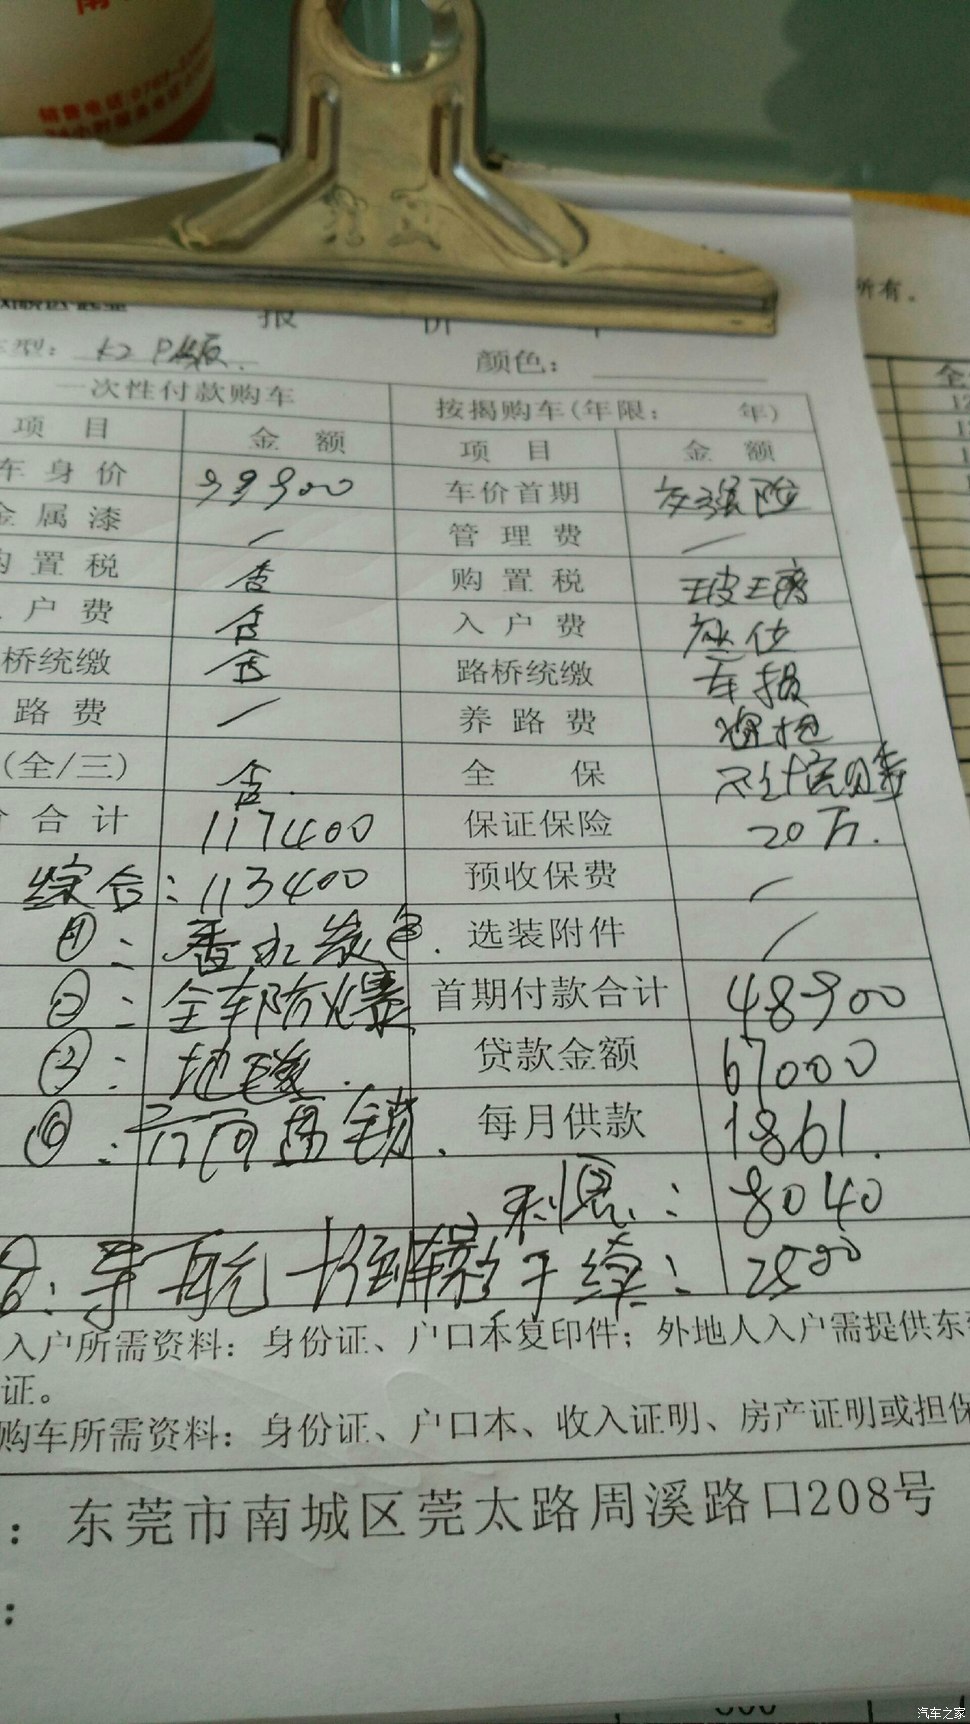 南
销售电话:0769-
24小时服务
所有。
报 价
型: K2 P版 颜色:
一次性付款购车 按揭购车(年限: 年)
项 目 金 额 项 目 金 额
车 身 价 99900 车价首期 交强险
金 属 漆 / 管 理 费 /
购 置 税 含 购 置 税 玻璃
入 户 费 含 入 户 费 座位
路桥统缴 含 路桥统缴 车损
路 费 / 养 路 费 盗抢
(全/三) 含. 全 保 不计免赔
合 计 117400 保证保险 20万.
综合: 113400 预收保费 /
①: 香水 选装附件 /
②: 全车防爆 首期付款合计 48900
③: 地毯. 贷款金额 67000
④: 方向盘锁. 每月供款 1861.
利息: 8040
导航 手续: 2500
入户所需资料: 身份证、户口本复印件; 外地人入户需提供东
证。
购车所需资料: 身份证、户口本、收入证明、房产证明或担保
: 东莞市南城区莞太路周溪路口208号
:
汽车之家